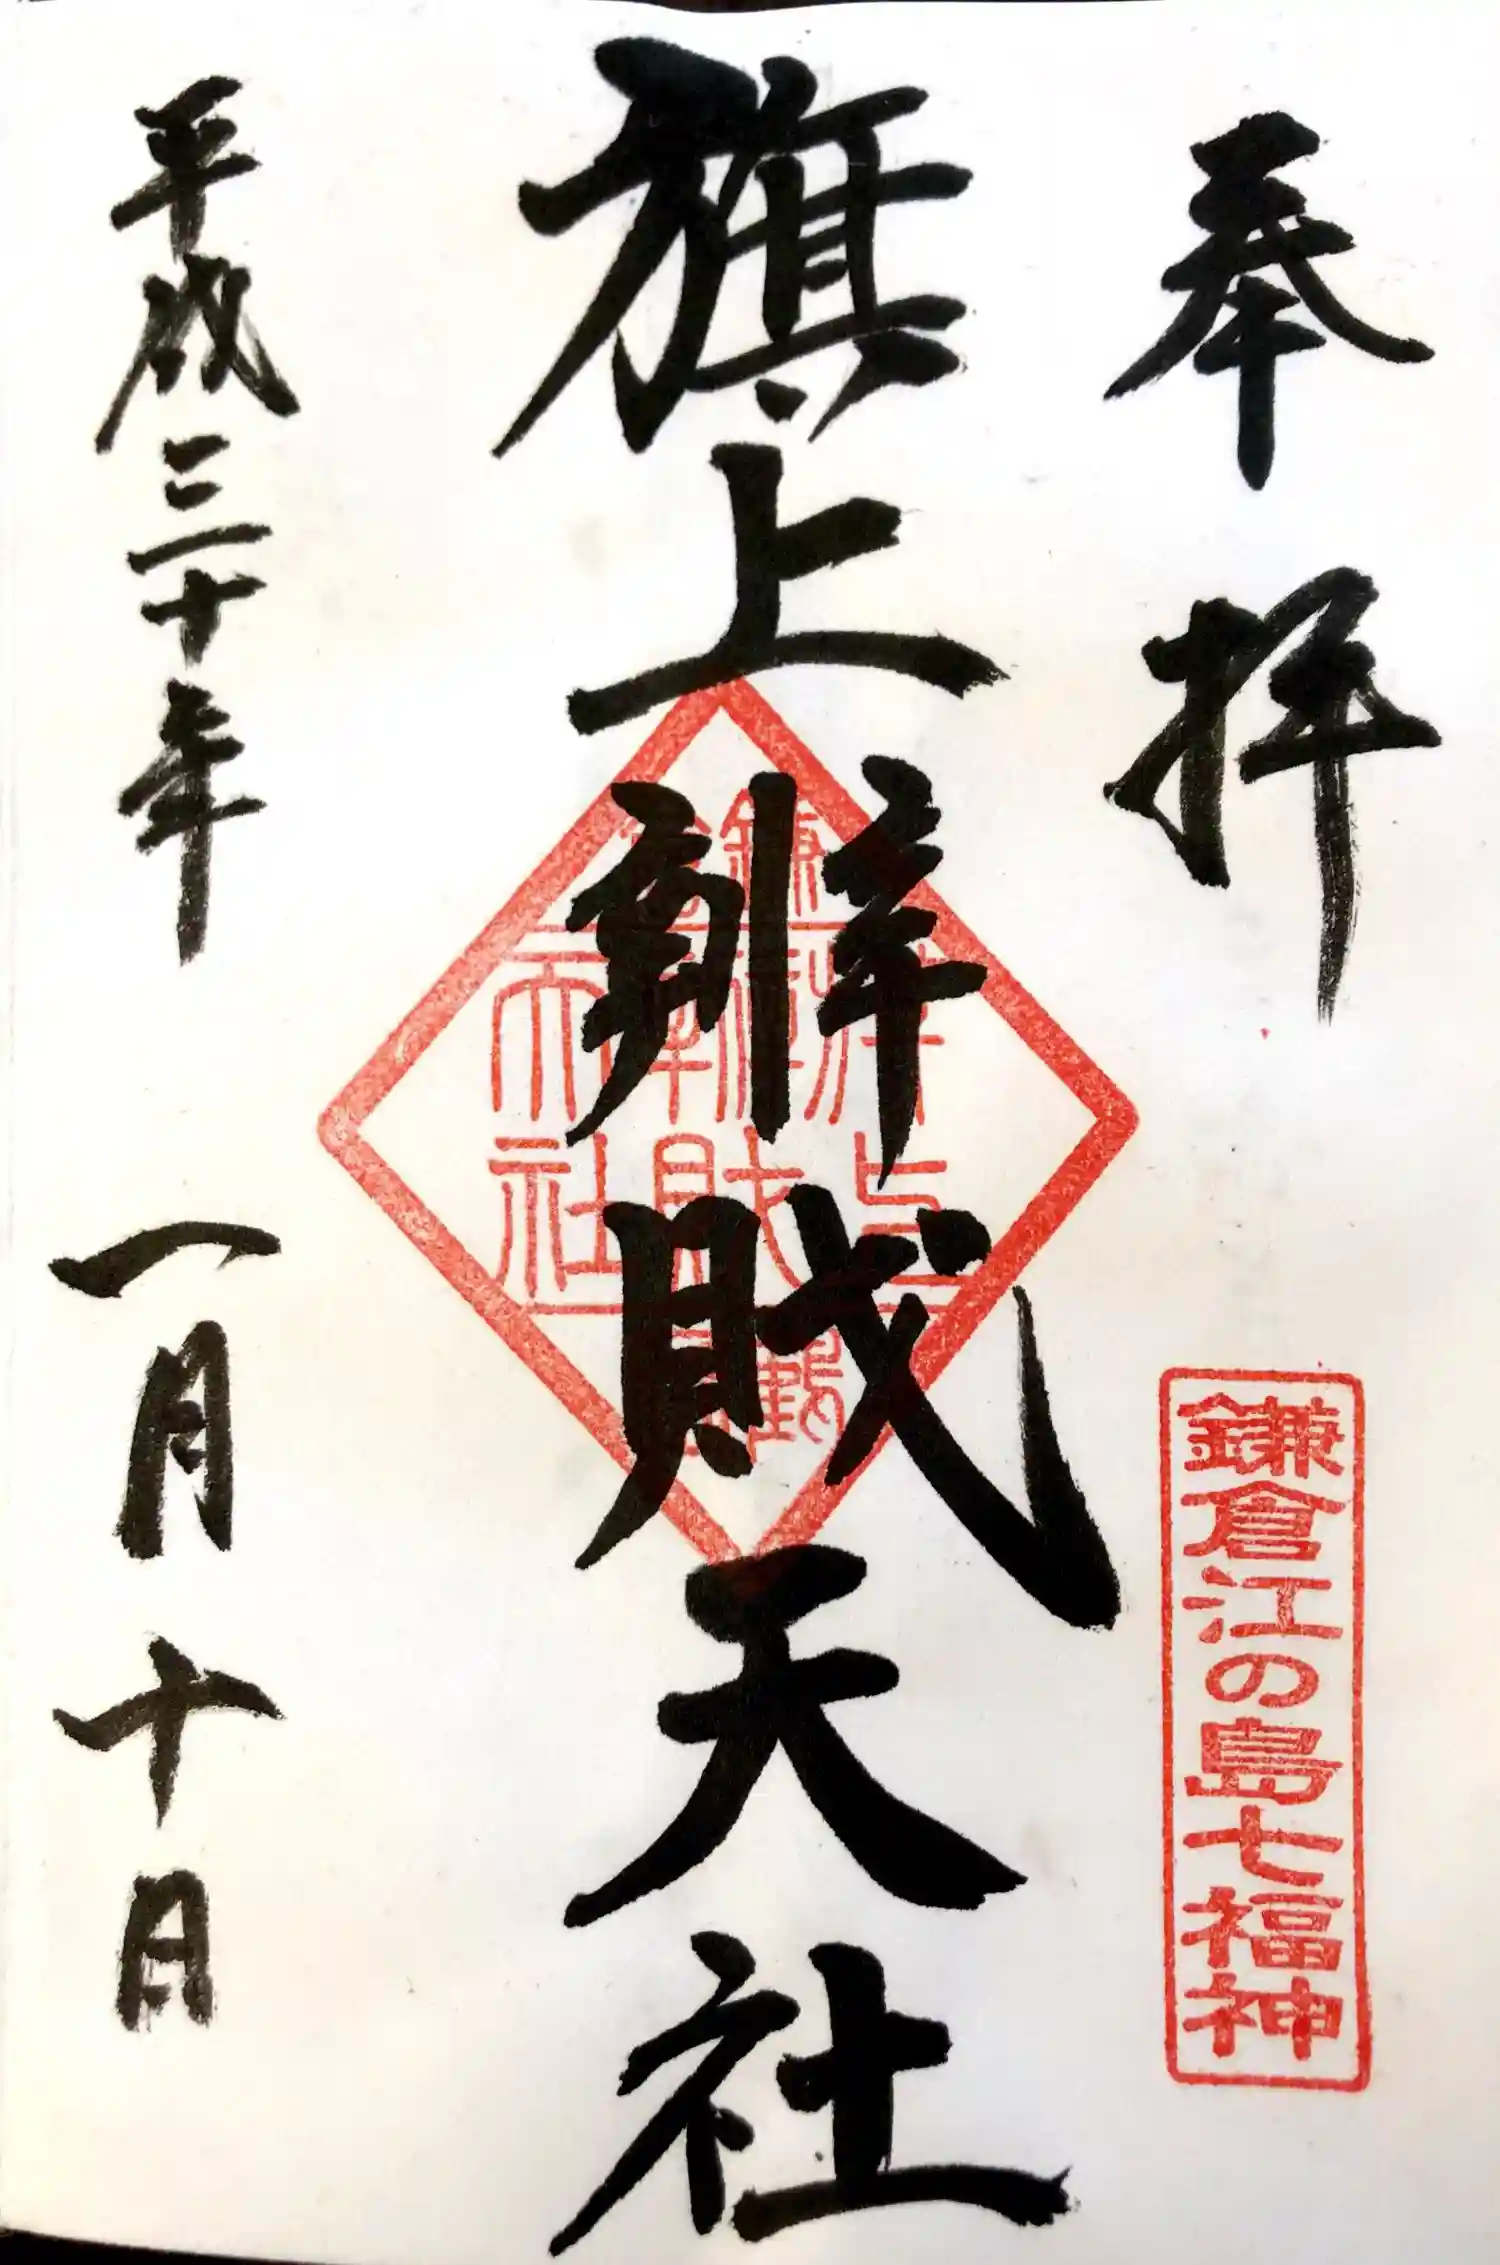 奉拝
鎌倉江の島七福神
旗上辨財天社
平成三十年 一月十日